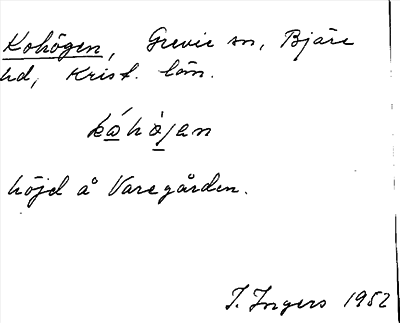 Kohögen, Grevie sn, Bjäre
hd, Krist. län.
kóhògen
höjd å Varegården.
I. Ingers 1952